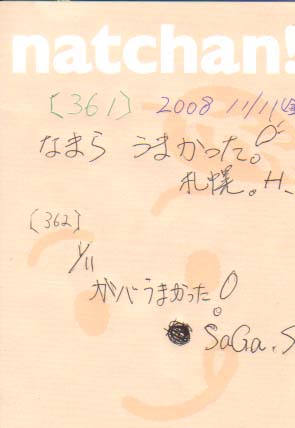 natchan!
[361] 2008 11/11
なまら うまかった。
札幌。H.
[362]
1/11
がバうまかった
SaGa.S